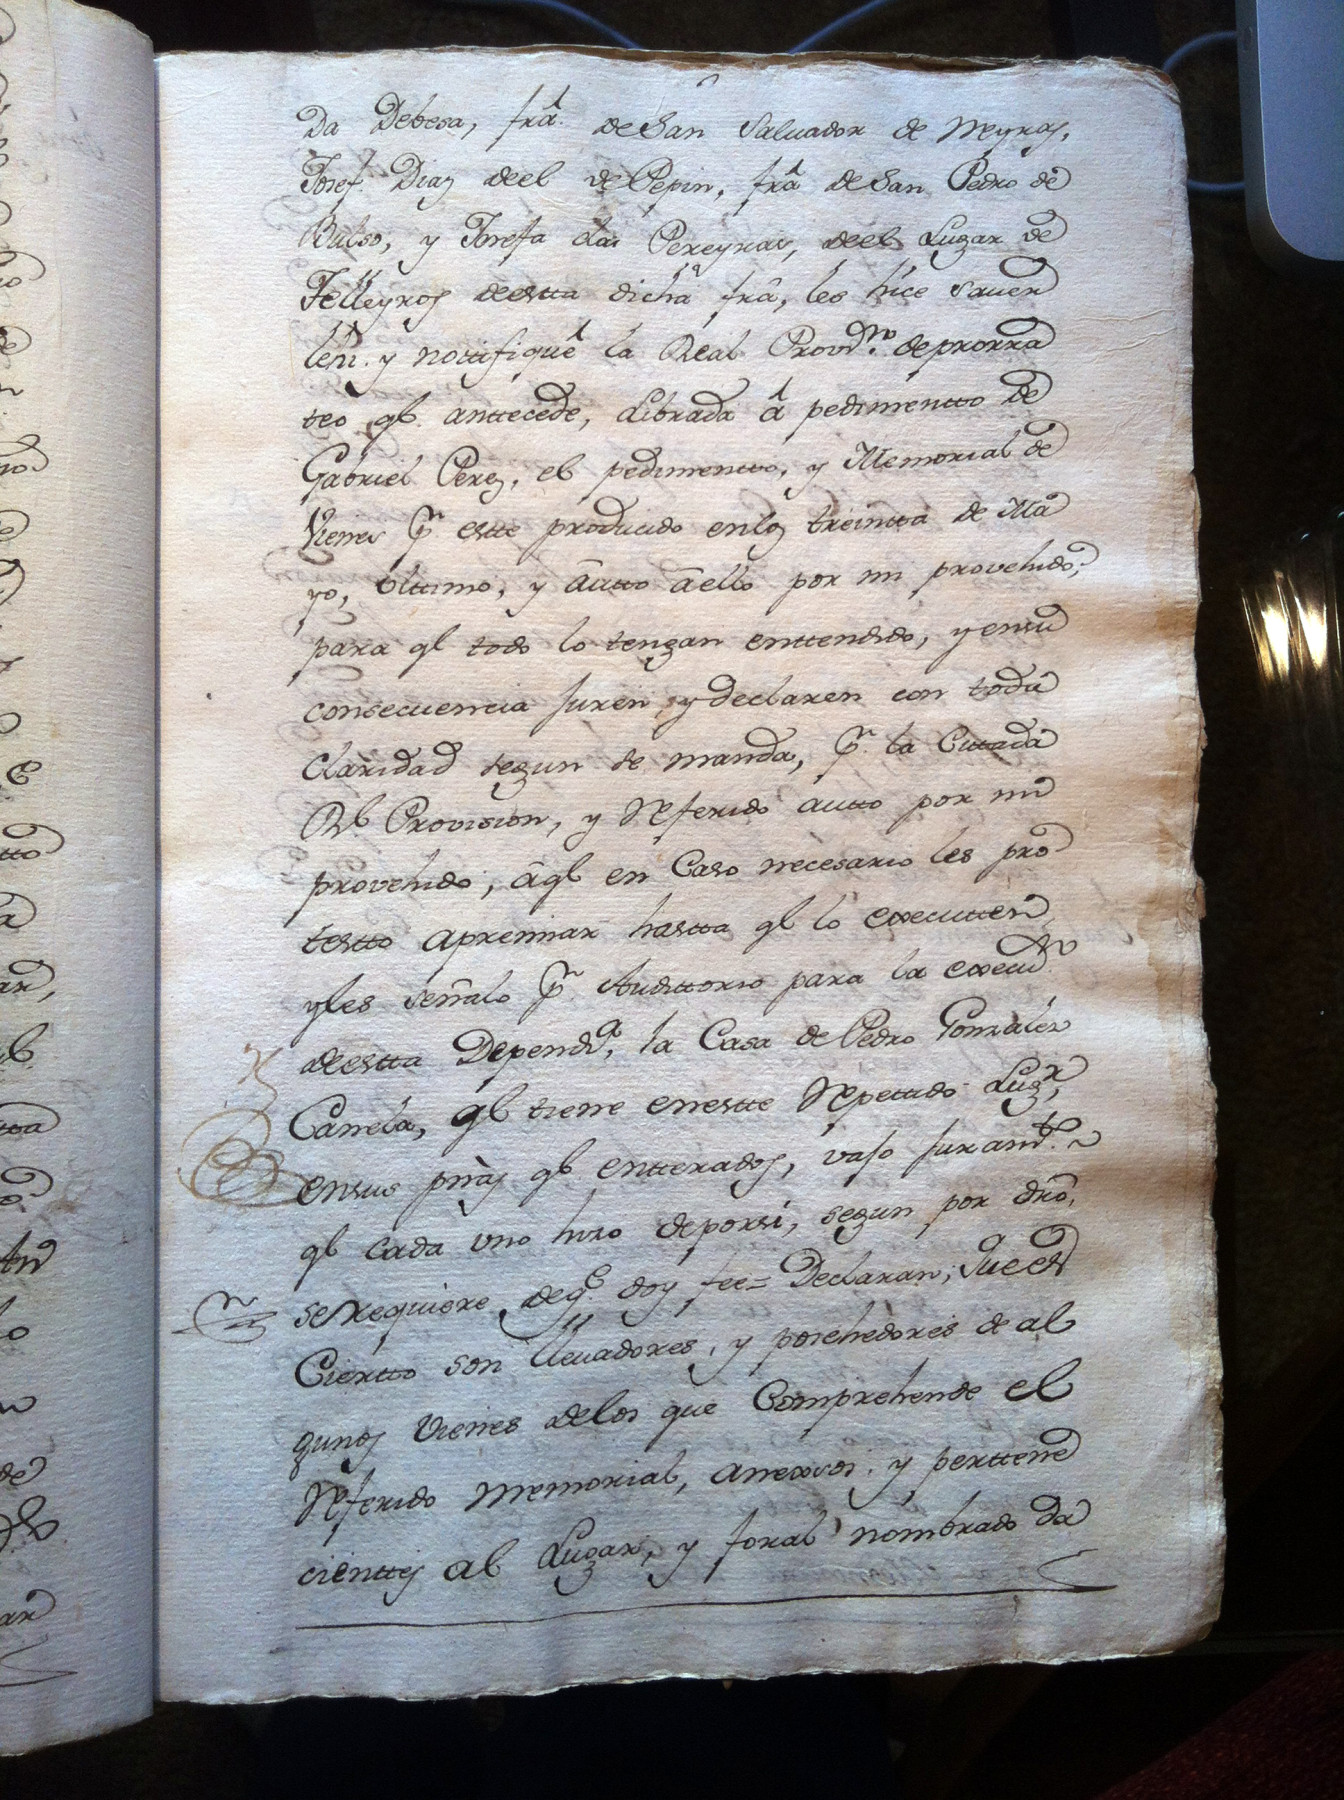 Da Debesa, frâ. de San Salvador de Neyros,
Josef. Diaz deel de Pepin, frâ de San Pedro de
Bulso, y Josefa das Pereyras, deel Lugar de
Telleyros deestta dicha frâ, les hice saver
leri. y nottifiquê la Real Provon. de prorra
teo ql. anttecede, Librada â pedimentto de
Gabriel Perez, el pedimentto, y Memorial de
Vienes pr. estte producido enlos treintta de Ma
yo, ûlttimo, y âutto âello por mi provehido,
para ql todo lo tengan enttendido, y ensu
consecuencia juren, y declaren con toda
Claridad segun se manda, pr. la Cittada
Rl. Provision, y Referido âutto por mi
provehido, âql en Caso necesario les pro
testto apremiar hastta ql lo executten
yles señalo pr. Audittorio para la execuon.
deestta Dependa., la Casa de Pedro Gonzalez
Canela, ql tiene enestte Repetido Lugr.,
ensus prâs ql. entterados, vajo juramto.
ql cada uno hizo deporsi, segun por drô,
seRequiere deqe. doy fee= Declaran; Quees
Ciertto son llevadores, y pose hedores de al
gunos Vienes delos que Comprehende el
Referido Memorial, anexsos. y perttene
cienttes al Lugar, y foral nombrado da